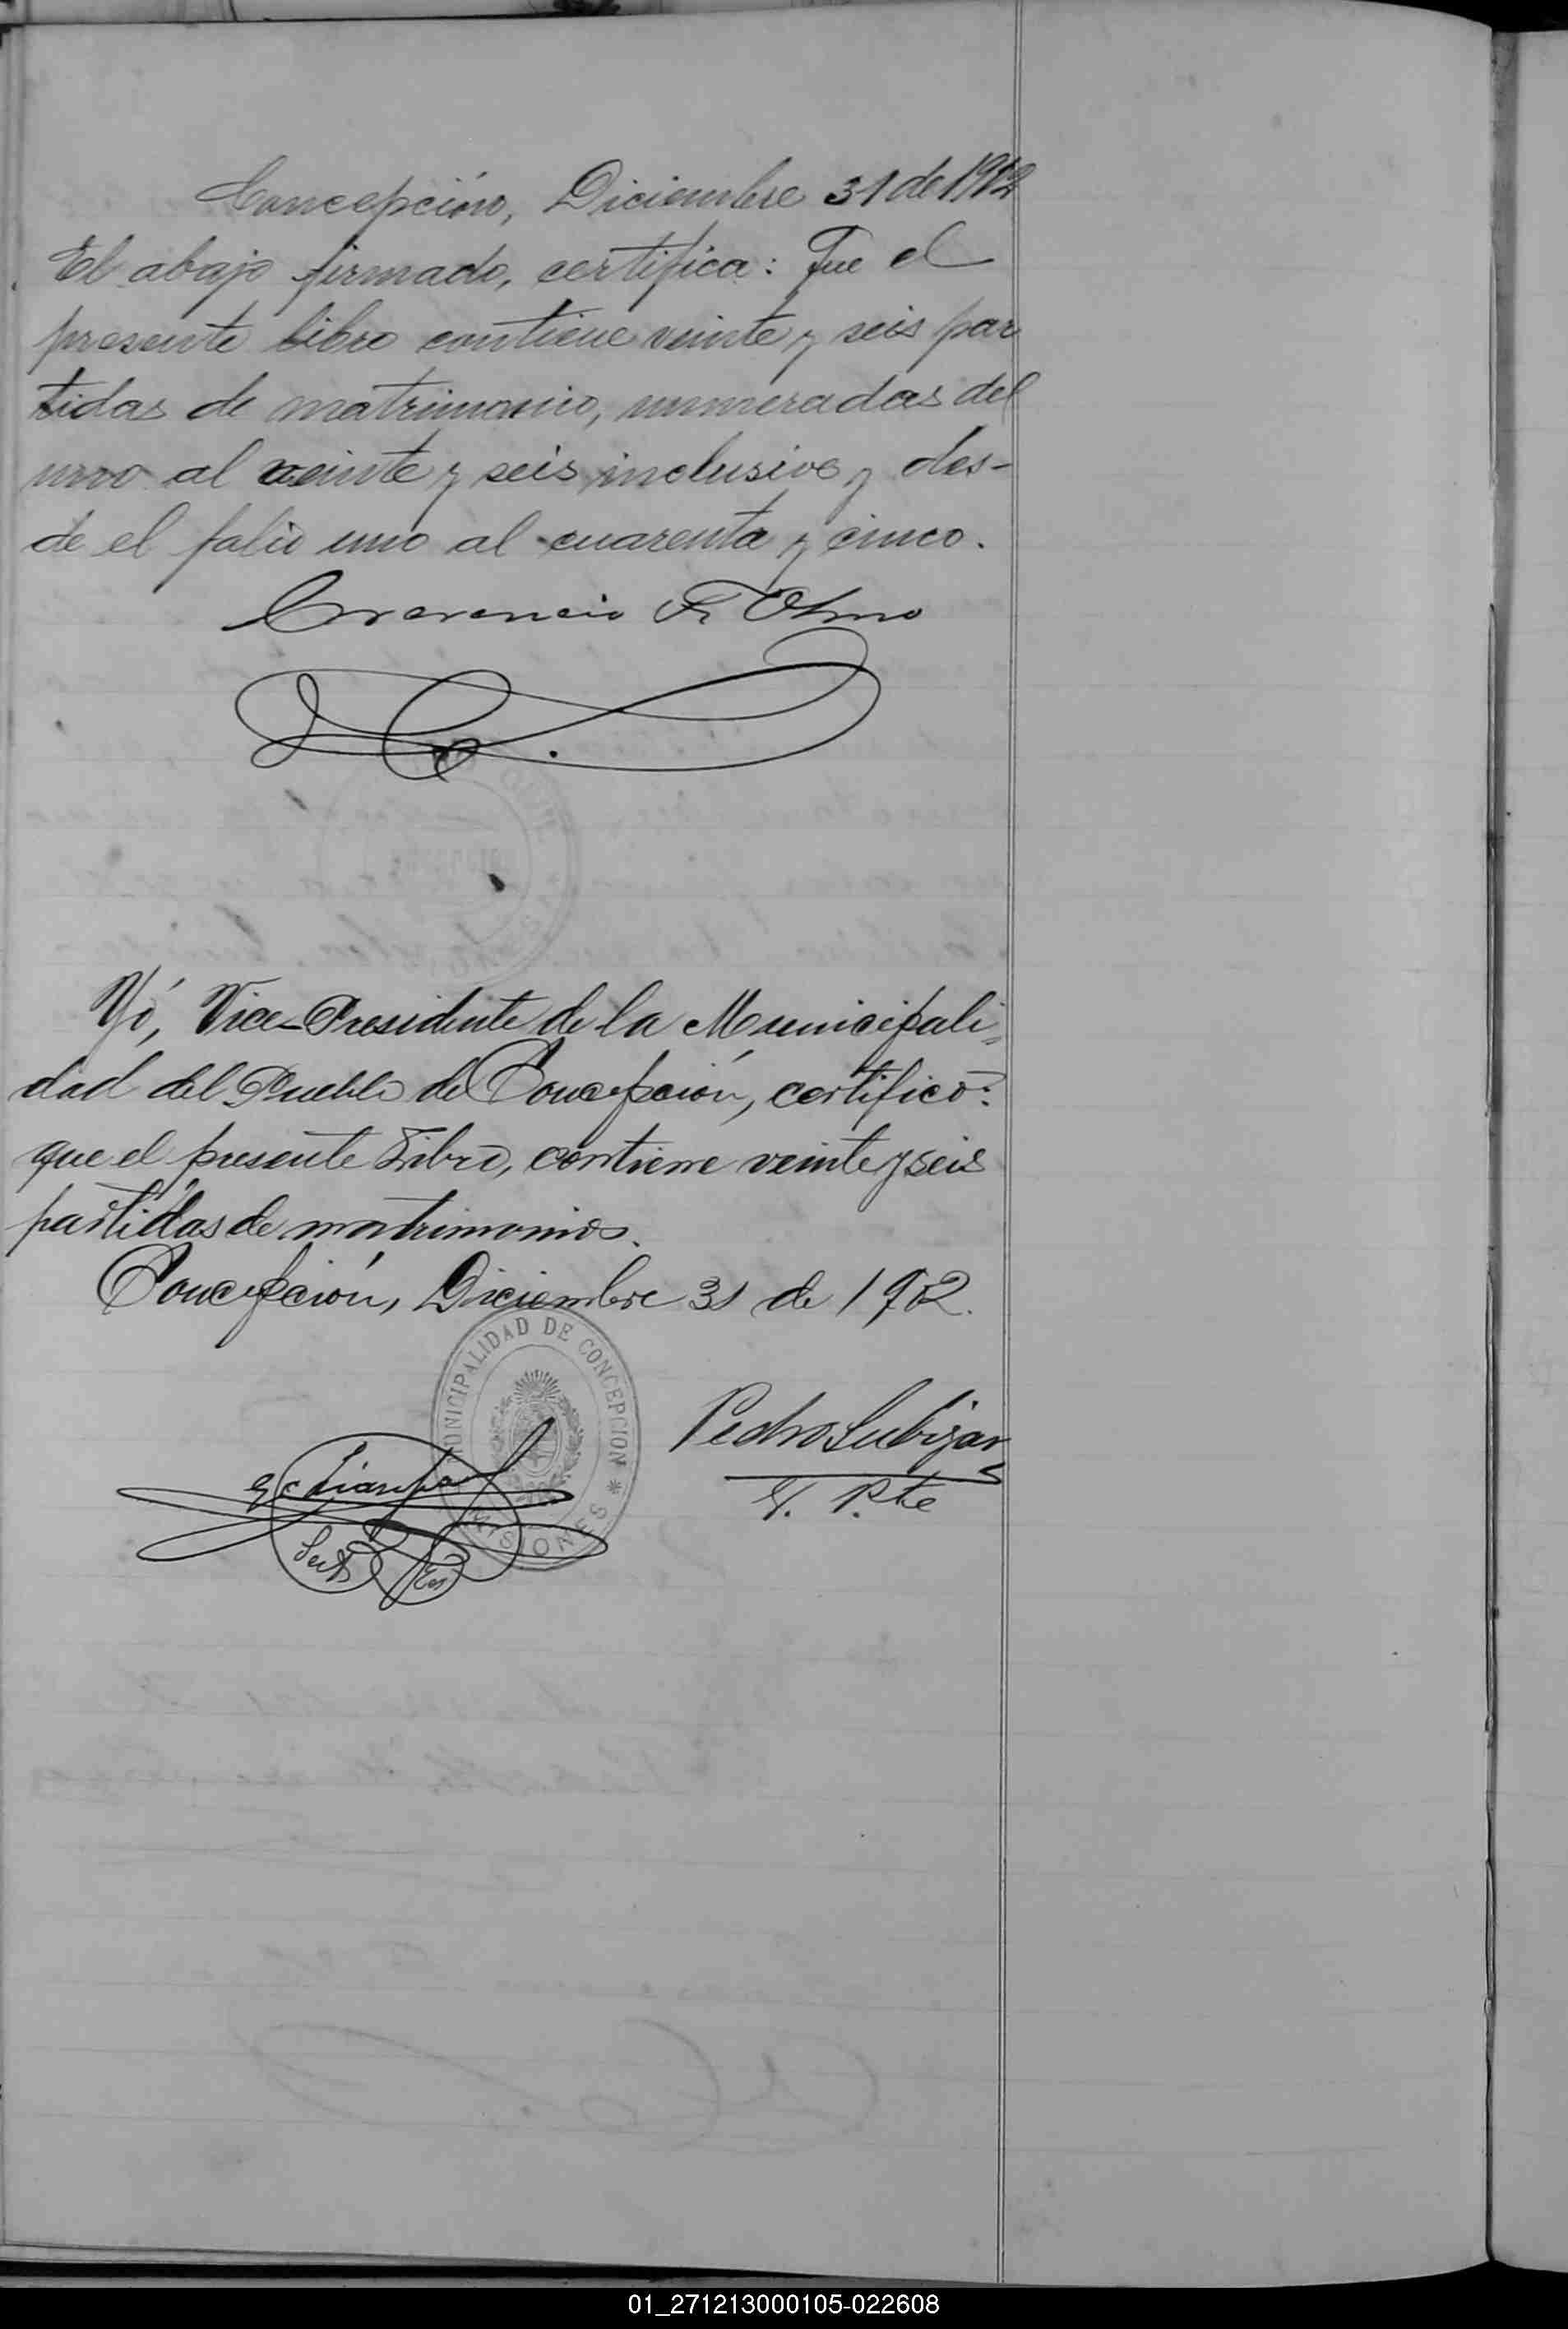 Concepción, Diciembre 31 de 1902
El abajo firmado, certifica: Que el
presente libro contiene veinte y seis par
tidas de matrimonio, numeradas del
uno al veinte y seis inclusive y des-
de el folio uno al cuarenta y cinco.
Yó, Vice-Presidente de la Municipali=
dad del Pueblo de Concepción, certifico:
que el presente Libro, contiene veinte y seis
partidas de matrimonios.
Concepción, Diciembre 31 de 1902.
MUNICIPALIDAD DE CONCEPCION * MISIONES
Pedro Lubizar
V. P.te
01_271213000105-022608